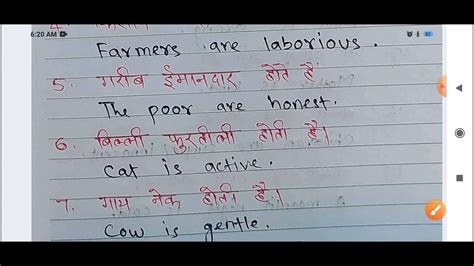 6:20 AM
Farmers are laborious.
5. गरीब ईमानदार होते हैं
The poor are honest.
6. बिल्ली फुरतीली होती है।
Cat is active.
7. गाय नेक होती है।
Cow is gentle.